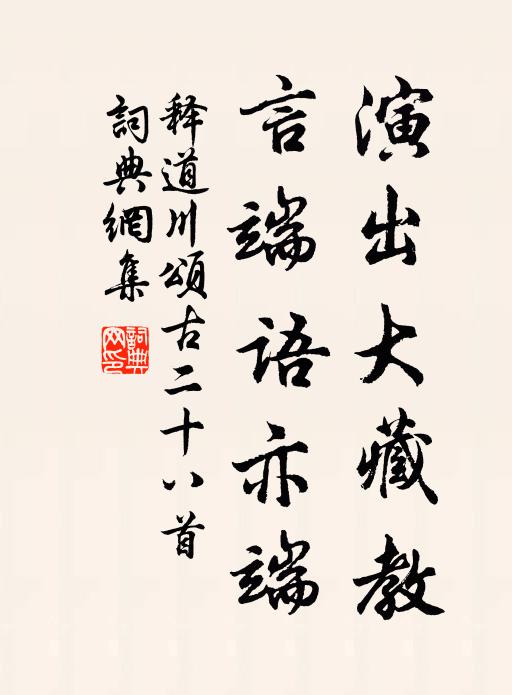 演出大藏教
言端语亦端
释道川頌古二十八首
詞典網集
詞典網印